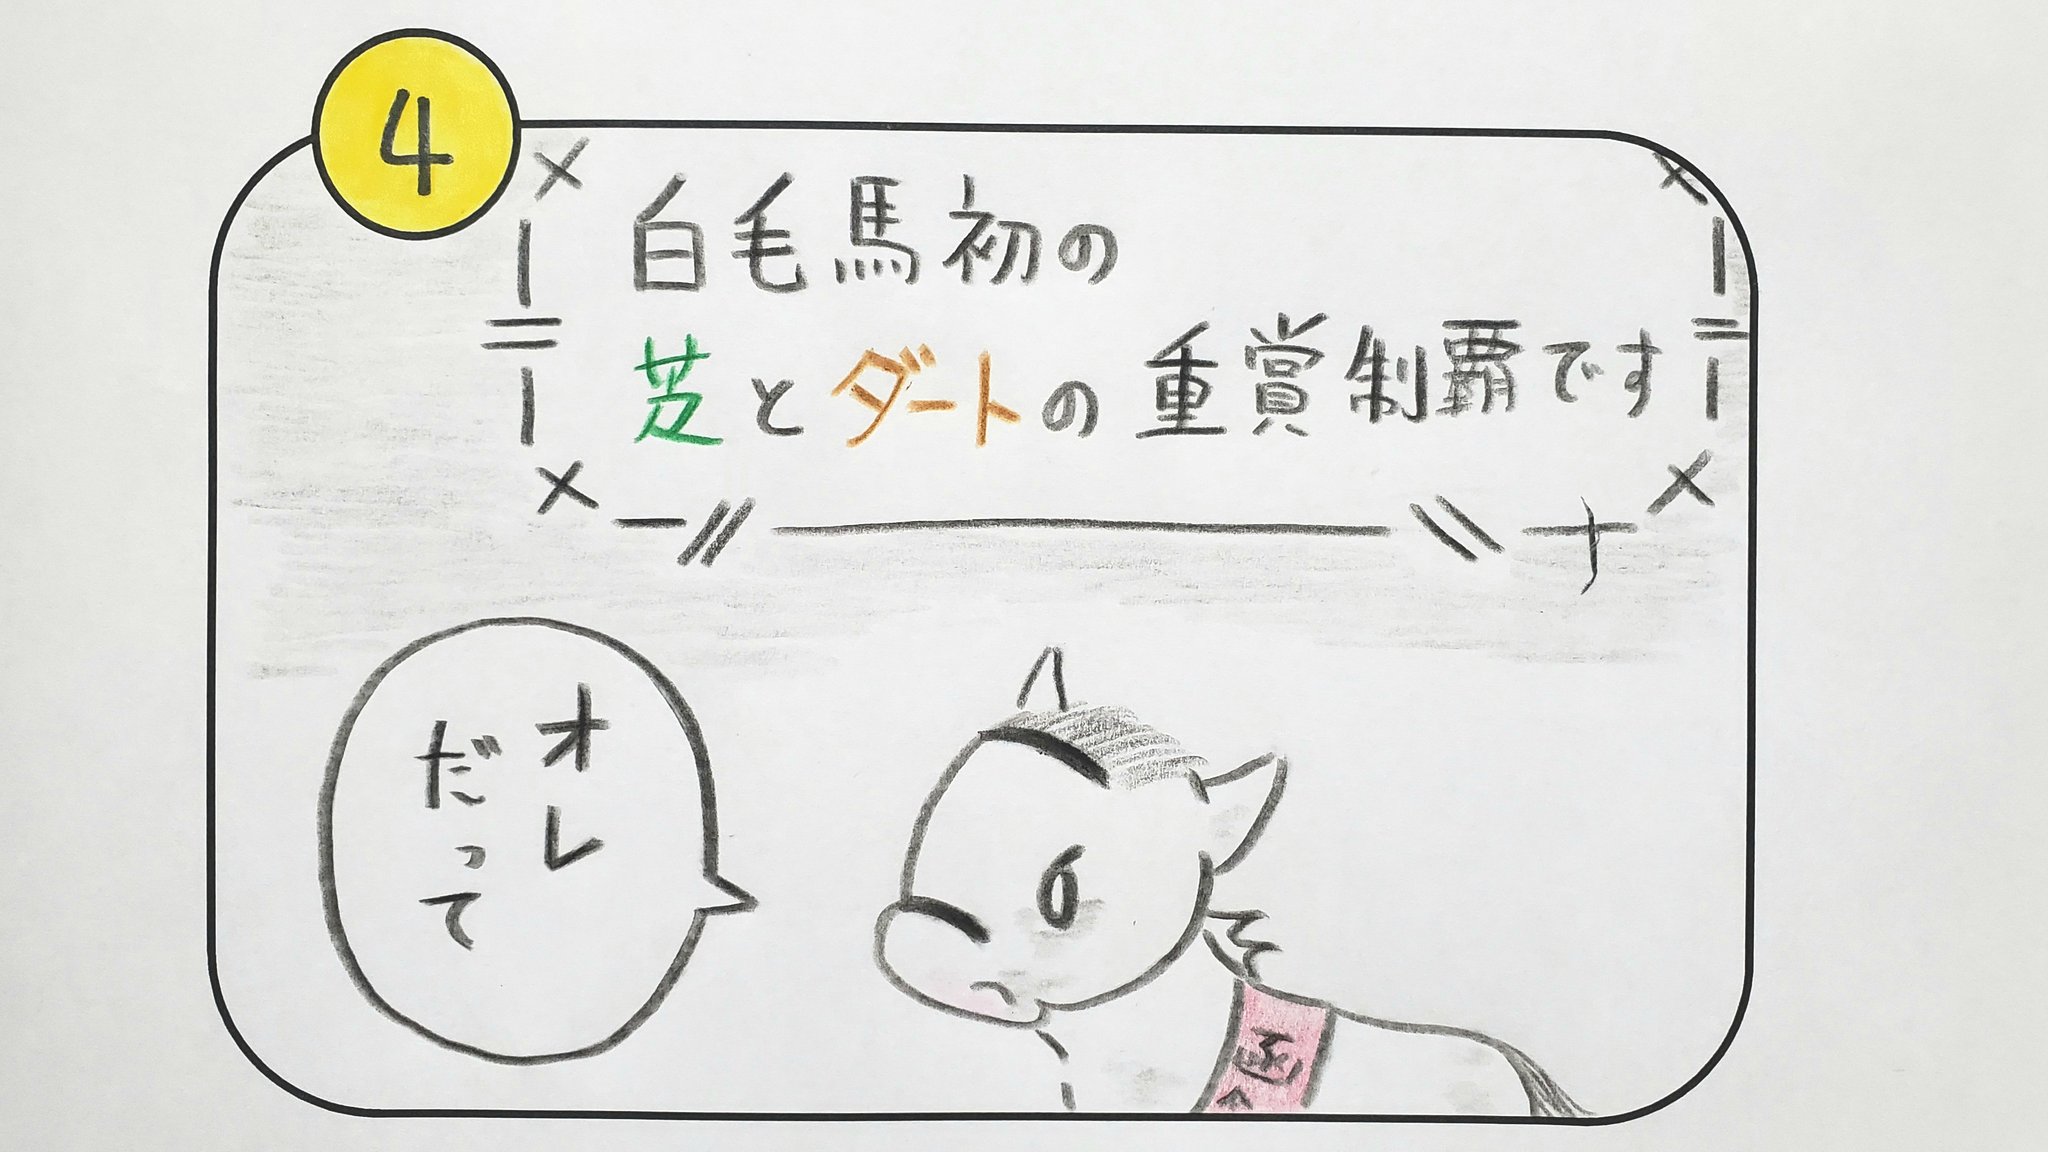 4
白毛馬初の
芝とダートの重賞制覇です
オレ
だって